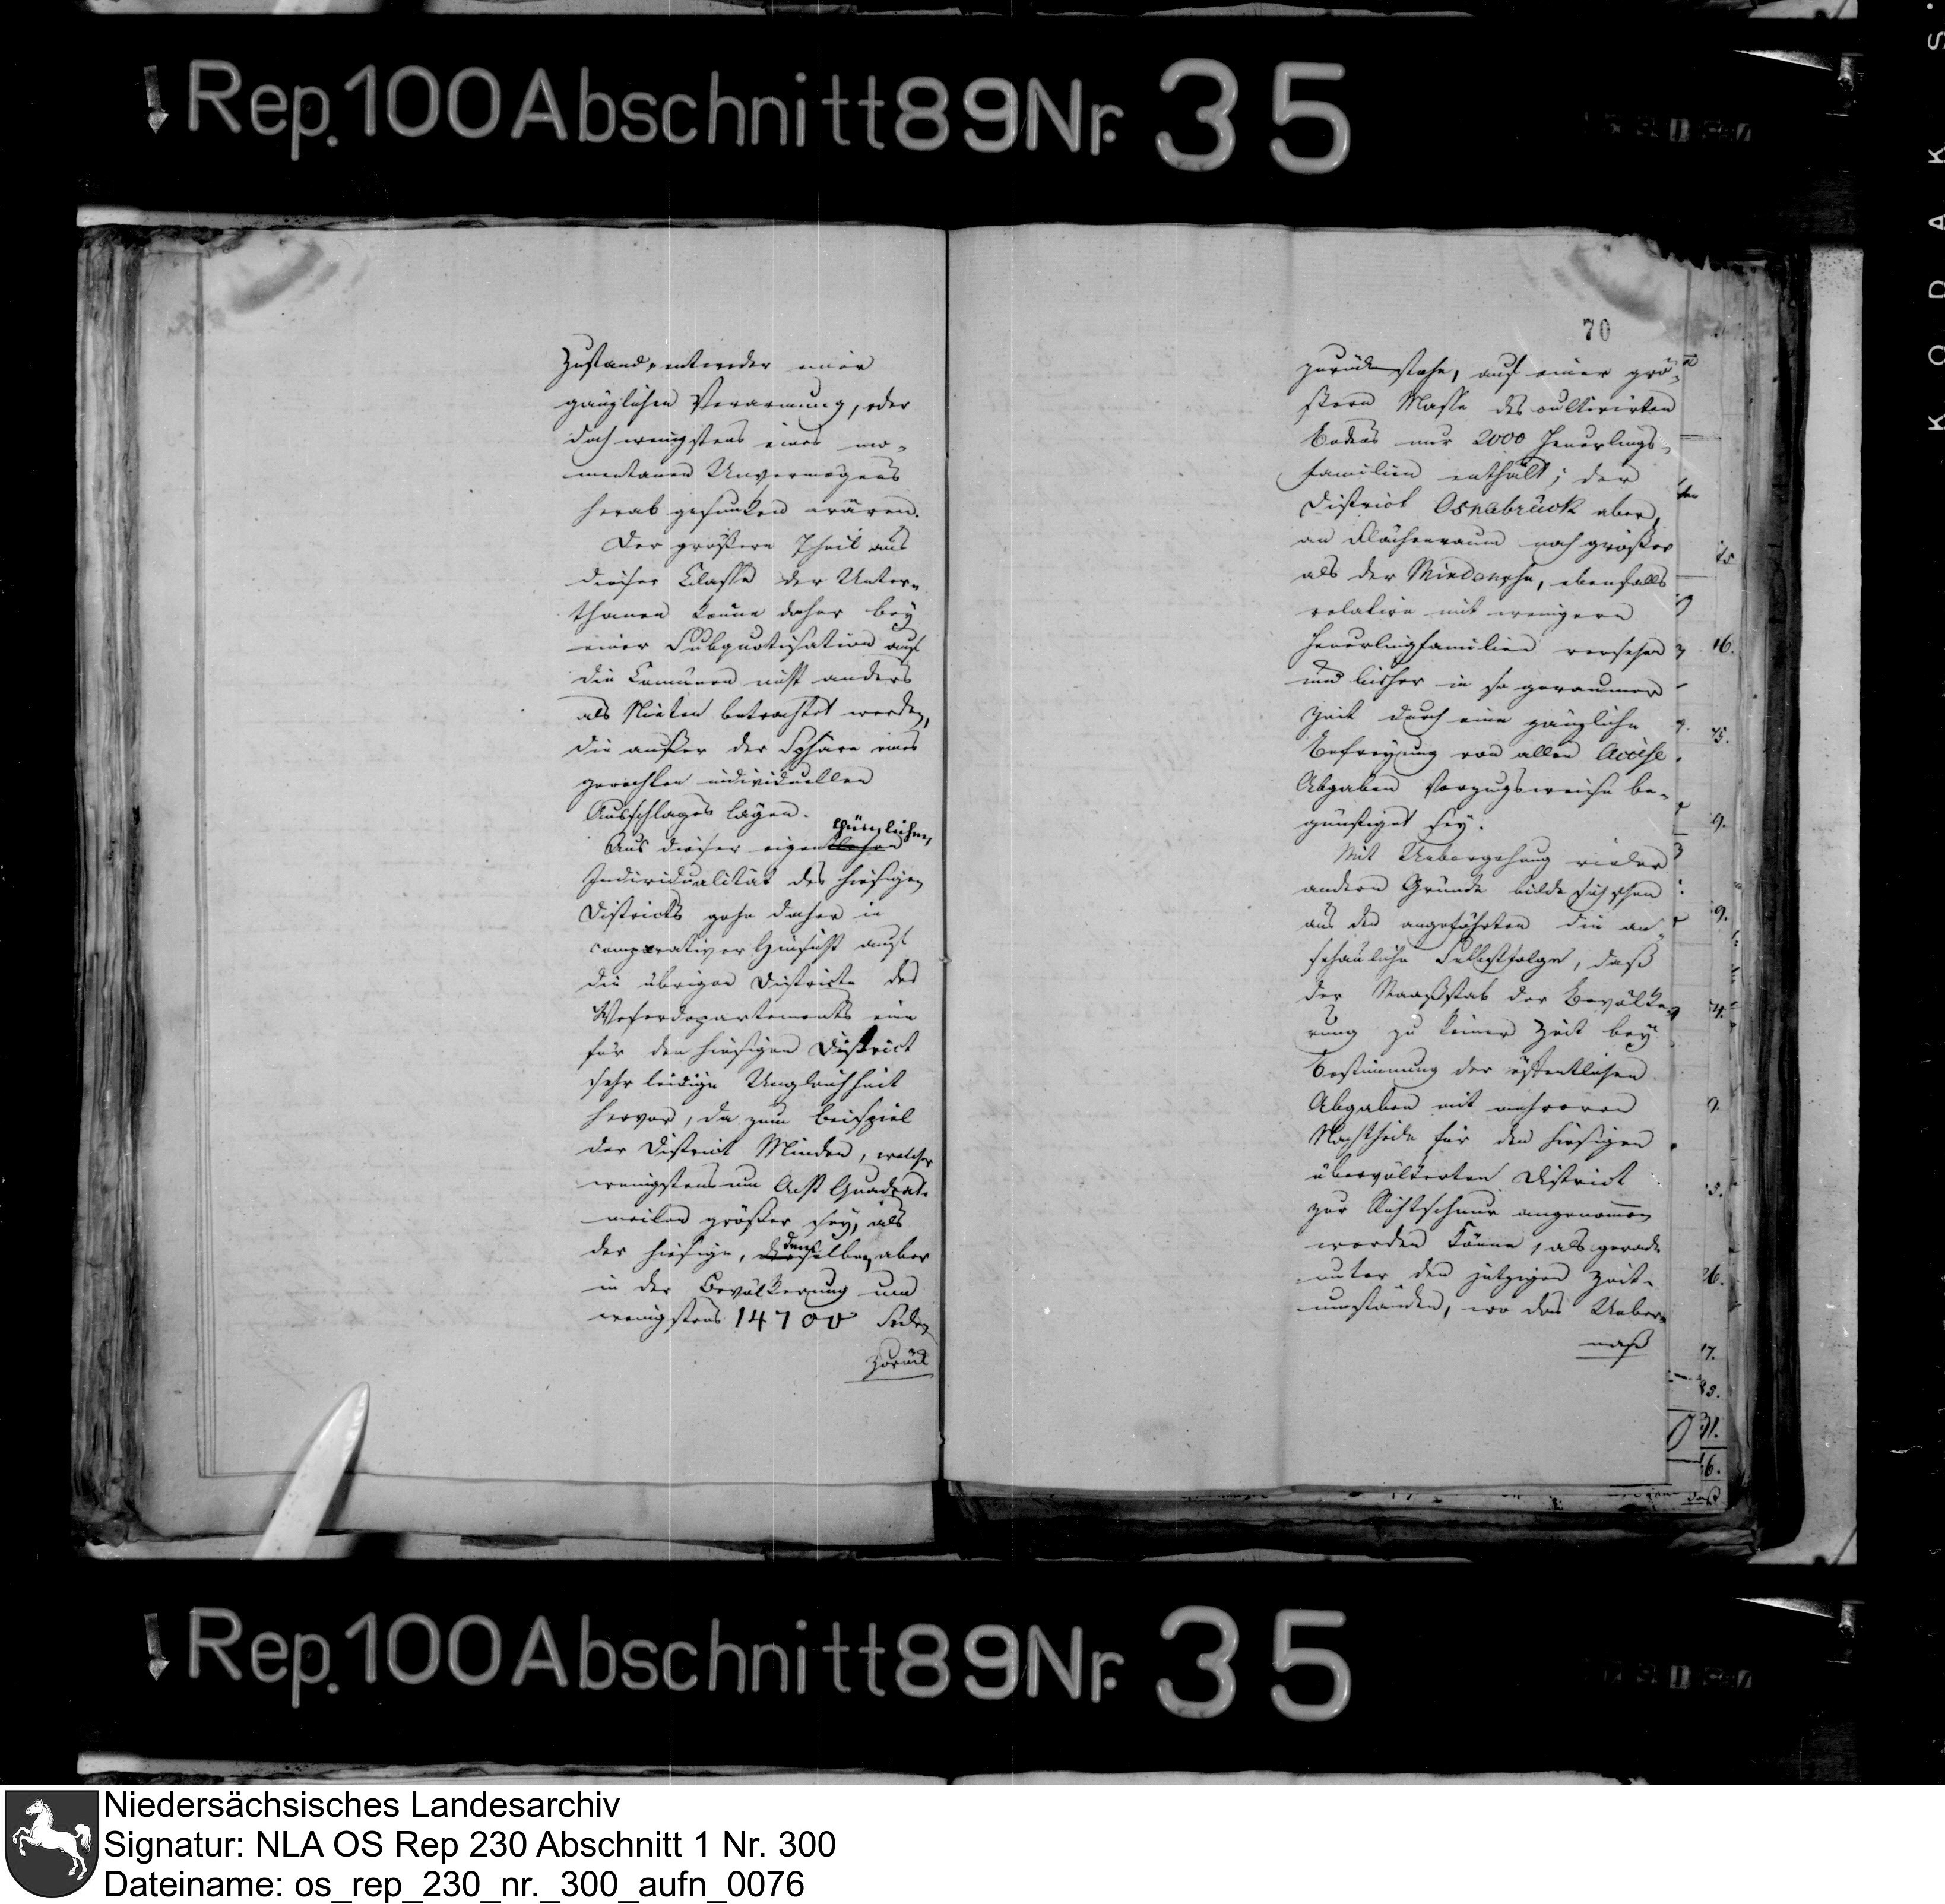 ↓ Rep. 100 Abschnitt 89 Nr. 35
Zustand, entweder einer
gänzlichen Verarmung, oder
doch wenigstens eines mo-
mentanen Unvermögens
herab gesunken wären.
Der größere Theil aus
dieser Classe der Unter-
thanen könne daher bey
einer Subquotisation auf
die Comunen nicht anders
als Nieten betrachtet werden,
die außer der Sphäre eines
gerechten individuellen
Ausschlages lägen.
thümlichen
Aus dieser eigentlichen
Individualität des hiesigen
Districts gehe daher in
comparativer Hinsicht auf
die übrigen Districte des
Weserdepartements eine
für den hiesigen District
sehr leidige Ungleichheit
hervor, da zum Beispiel
der District Minden, welcher
wenigstens um Acht Quadrat-
meilen größer sey, als
der hiesige, demselben aber
in der Bevölkerung um
wenigstens 14700 Seelen
zurück
70
zurückstehe, auf einer grö-
ßern Masse des cultivirten
Bodens nur 2000 Heuerlings-
familien enthält; der
District Osnabrück aber,
an Flächenraum noch größer
als der Mindensche, ebenfalls
relative mit wenigern
Heuerlingfamilien versehen
und bisher in so geraumer
Zeit durch eine gänzliche
Befreyung von allen Accise
Abgaben Vorzugsweise be-
günstiget sey.
Mit Uebergehung vieler
andern Gründe bilde sich schon
aus den angeführten die an-
schauliche Selbstfolge, daß
der Maaßstab der Bevölke-
rung zu keiner Zeit bey
Bestimmung der öffentlichen
Abgaben mit mehreren
Nachtheile für den hiesigen
übervölkerten District
zur Richtschnur angenommen
werden könne, als gerade
unter den jetzigen Zeit-
umständen, wo das Ueber-
maß
↓ Rep. 100 Abschnitt 89 Nr. 35
Niedersächsisches Landesarchiv
Signatur: NLA OS Rep 230 Abschnitt 1 Nr. 300
Dateiname: os_rep_230_nr._300_aufn_0076